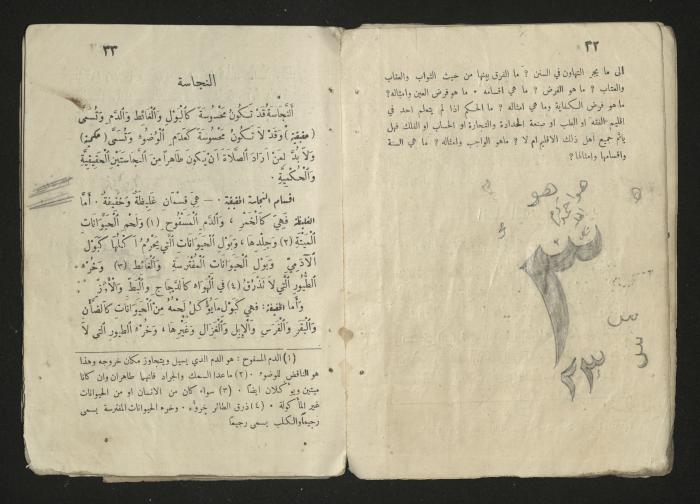 ٣٢
الى ما يجر التهاون في السنن ؟ ما الفرق بينها من حيث الثواب والعقاب
والعتاب ؟ ما هو الفرض ؟ ما هي اقسامه ٠ ما هو فرض العين وامثاله ؟
ما هو فرض الكفاية وما هي امثاله ؟ ما الحكم اذا لم يتعلم احد في
إقليم الفقه او الطب او صنعة الحدادة والنجارة او الحساب او الفلك فهل
يأثم جميع أهل ذلك الاقليم ام لا ؟ ماهو الواجب وامثاله ؟ ما هي السنة
واقسامها وامثالها ؟
هو
هو
٣
٢٣
س
س
٣٣
النجاسة
اَلنَّجَاسَةُ قَدْ تَكُونُ مَحْسُوسَةً كَالْبَوْلِ وَالْغَائِطِ وَالدَّمِ وَتُسَمَّى
(حقيقية) وَقَدْ لَا تَكُونُ مَحْسُوسَةً كَعَدَمِ الْوُضُوءِ وَتُسَمَّى (حكمية)
وَلَا بُدَّ لِمَنْ أَرَادَ الصَّلَاةَ أَنْ يَكُونَ طَاهِرًا مِنَ النَّجَاسَتَيْنِ الْحَقِيقِيَّةِ
وَالْحُكْمِيَّةِ ٠
اقسام النجاسة الحقيقية ٠ — هِيَ قِسْمَانِ غَلِيظَةٌ وَخَفِيفَةٌ ٠ أَمَّا
الغليظة فَهِيَ كَالْخَمْرِ ، وَالدَّمِ الْمَسْفُوحِ (١) وَلَحْمِ الْحَيَوَانَاتِ
الْمَيْتَةِ (٢) وَجِلْدِهَا ، وَبَوْلِ الْحَيَوَانَاتِ الَّتِي يَحْرُمُ أَكْلُهَا كَبَوْلِ
الْآدَمِيِّ وَبَوْلِ الْحَيَوَانَاتِ الْمُفْتَرِسَةِ وَالْغَائِطِ (٣) وَخُرْءِ
الطُّيُورِ الَّتِي لَا تَذْرُقُ (٤) فِي الْهَوَاءِ كَالدَّجَاجِ وَالْبَطِّ وَالْأَوَزِّ
وَأَما الخفيفة: فهي كَبَوْلِ مَا يُؤْكَلُ لَحْمُهُ مِنَ الْحَيَوَانَاتِ كَالضَّأْنِ
وَالْبَقَرِ وَالْفَرَسِ وَالْإِبِلِ وَالْغَزَالِ وَغَيْرِهَا ، وَخُرْءِ الطيورِ التي لَا
(١) الدم المسفوح : هو الدم الذي يسيل ويتجاوز مكان خروجه وهذا
هو الناقض للوضوء ٠ (٢) ماعدا السمك والجراد فانهما طاهران وان كانا
ميتين ويؤكلان ايضًا ٠ (٣) سواء كان من الانسان او من الحيوانات
غير المأكولة ٠ (٤) ذرق الطائر خروءه ٠ وخرء الحيوانات المفترسة يسمى
رجيعًا والكلب يسمى رجيعًا